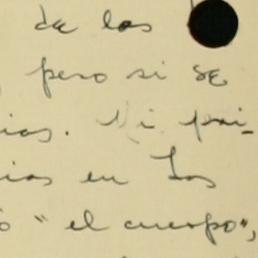 de los
, pero si se
ias. Mi pai-
ias en Los
ó "el cuerpo",